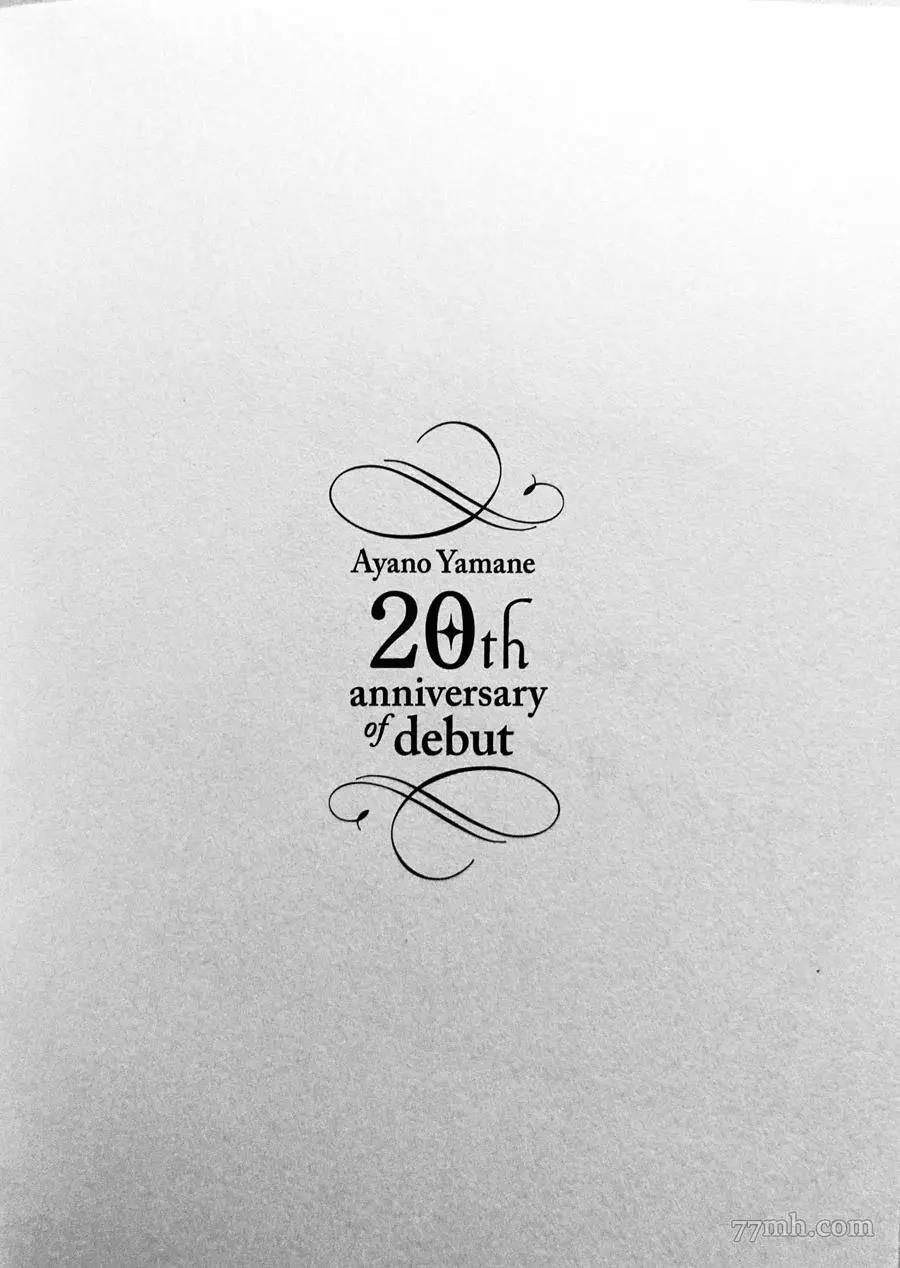 Ayano Yamane
20th
anniversary
of debut
77mh.com